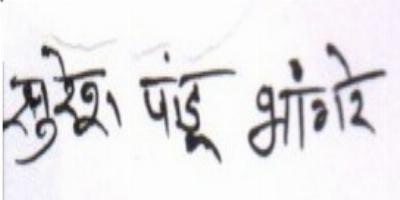 सुरेश पांडू भांगरे